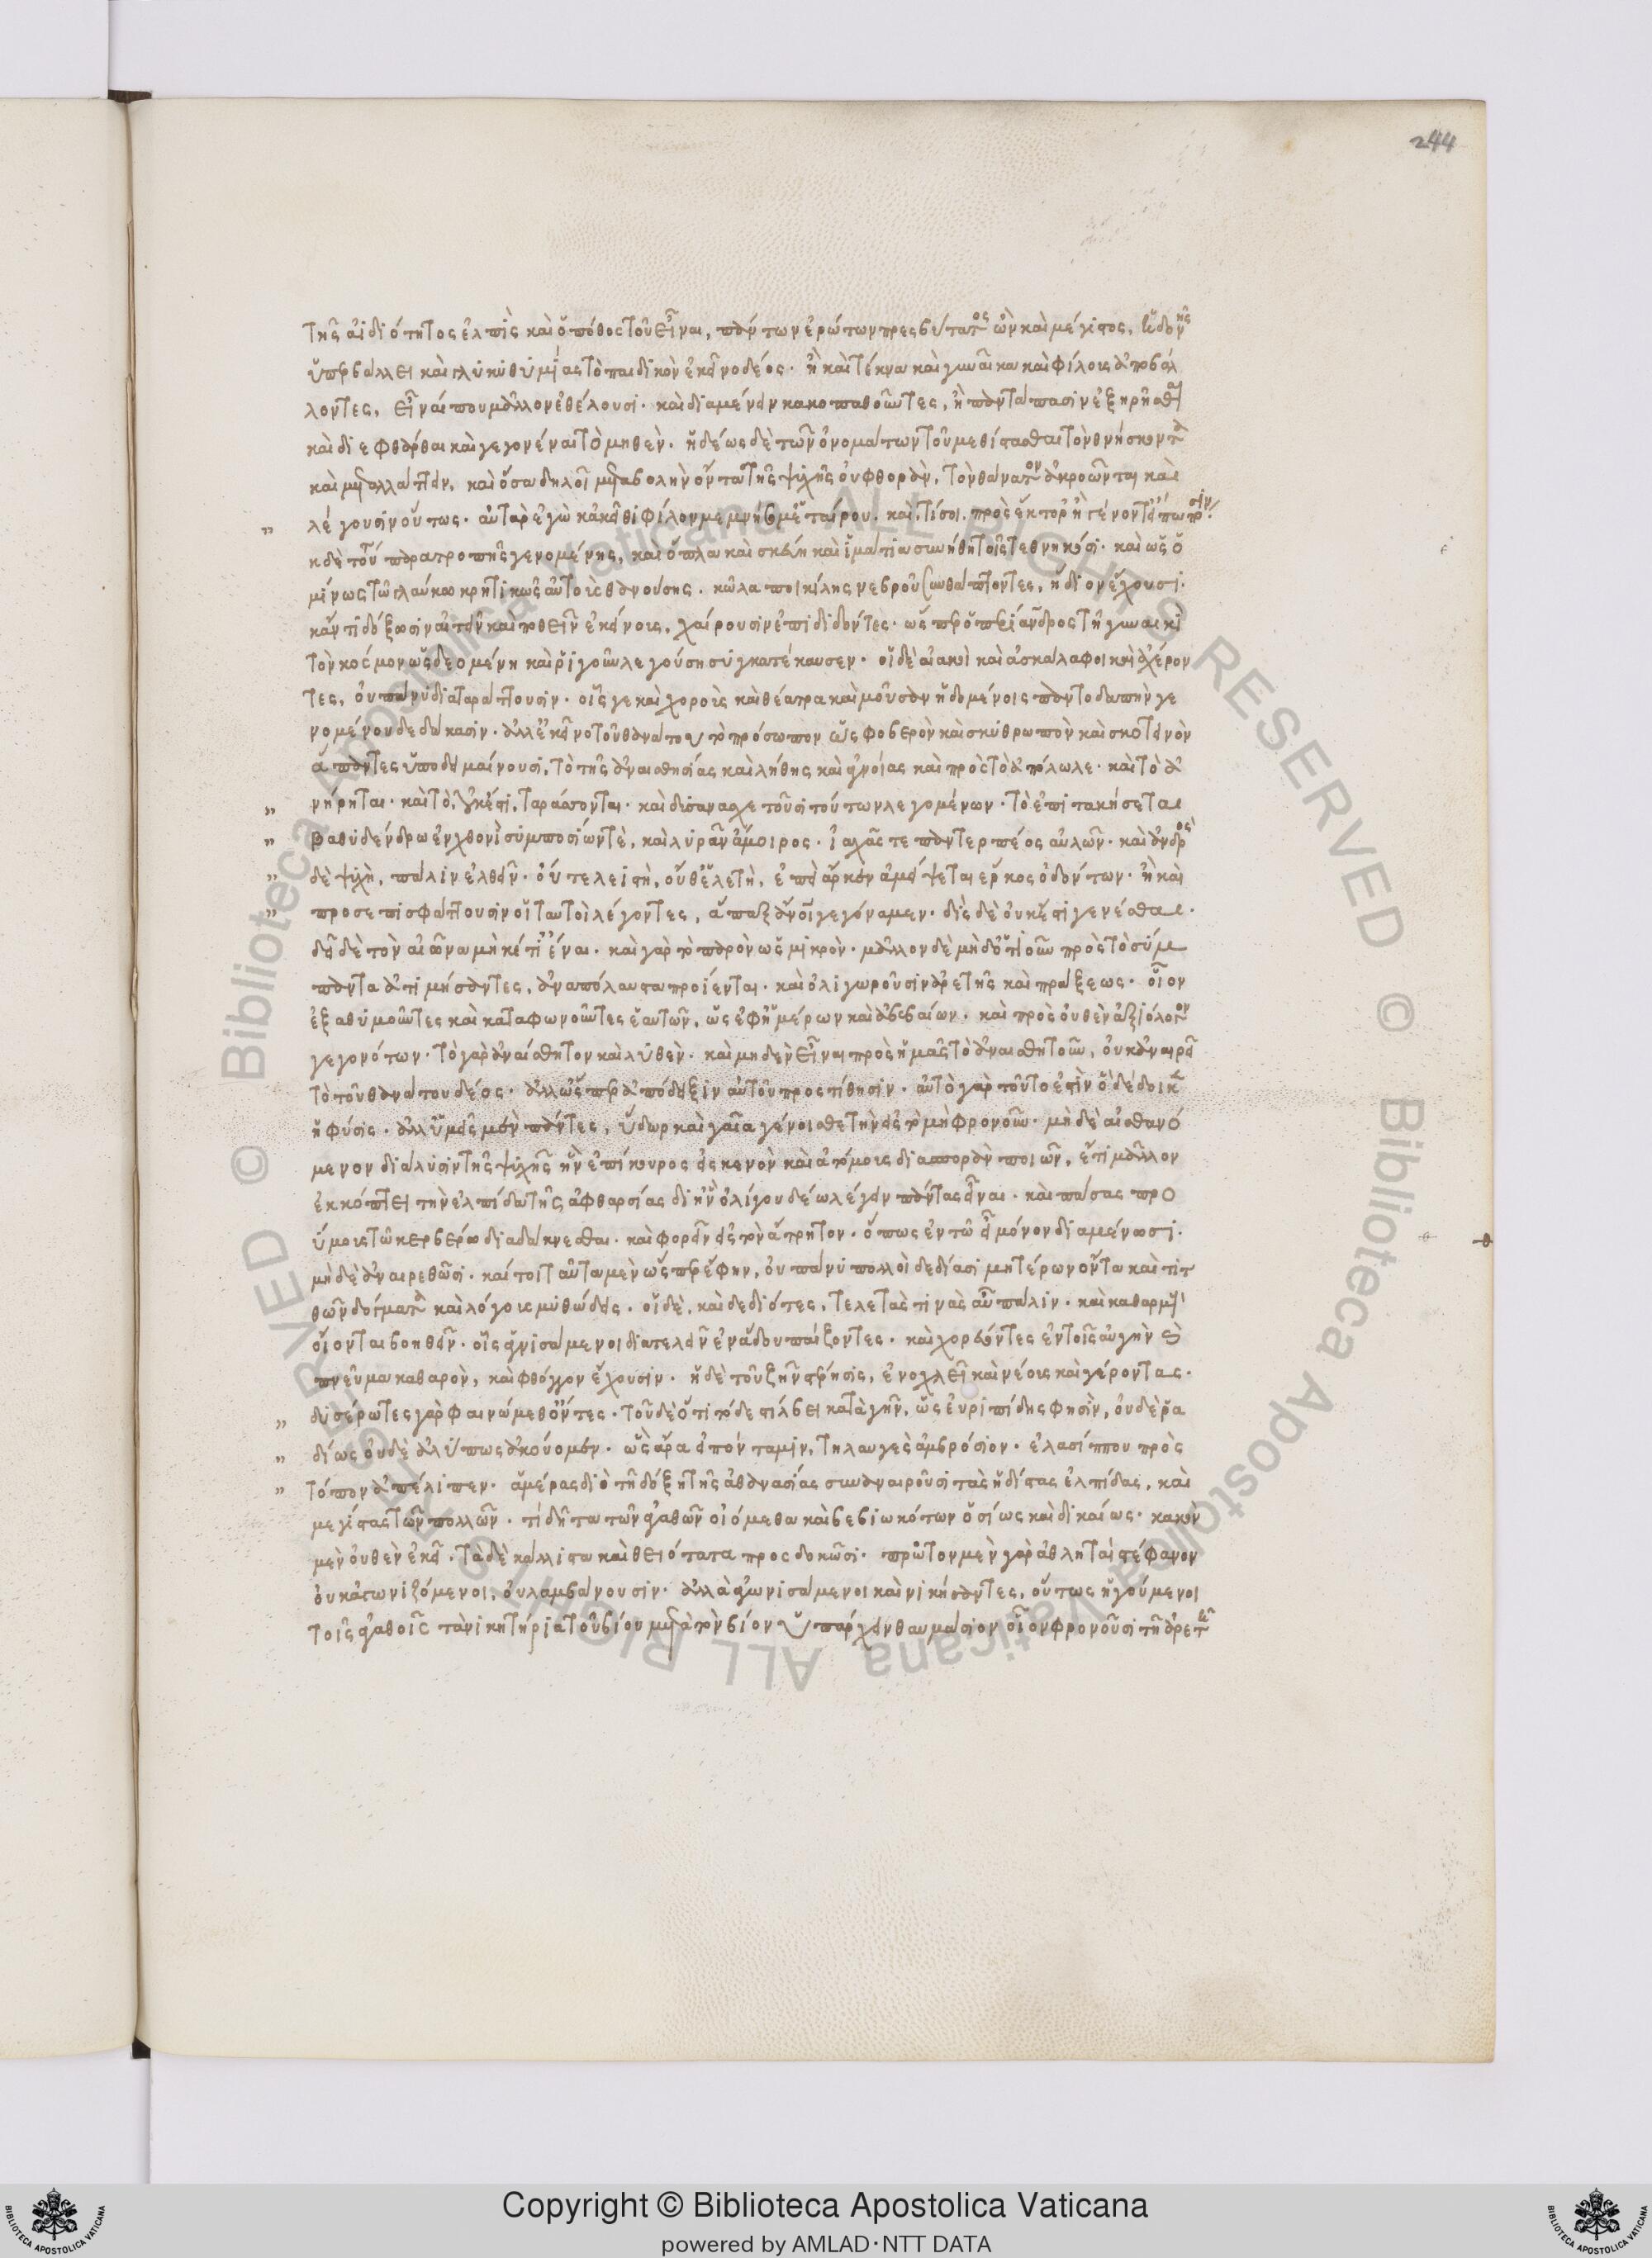 244
τῆς ἀιδιότητος ἐλπὶς καὶ ὁ πόθος τοῦ εἶναι, πάντων ἐρώτων πρεσβύτατος ὢν καὶ μέγιστος, ἡδονῆς
ὑπερβάλλει καὶ γλυκυθυμίας τὸ παιδικὸν ἐκεῖνο δέος. ἢ καὶ τέκνα καὶ γυναῖκα καὶ φίλους ἀποβάλ
λοντες, εἶναί που μᾶλλον ἐθέλουσι. καὶ διαμένειν κακοπαθοῦντες, ἢ παντάπασιν ἐξῃρῆσθαι
καὶ διεφθάρθαι καὶ γεγονέναι τὸ μηθέν. ἡδέως δὲ τῶν ὀνομάτων τοῦ μεθίστασθαι τὸν θνήσκοντα
καὶ μεταλλάττειν, καὶ ὅσα δηλοῖ μεταβολὴν ὄντα τῆς ψυχῆς οὐ φθορὰν, τὸν θάνατον ἀκροῶνται καὶ
λέγουσιν οὕτως. αὐτὰρ ἐγὼ κἀκεῖθι φίλου μεμνήσομ' ἑταίρου. καὶ, τί σοι πρὸς ἕκτορ' ἢ γέροντ' εἴπω πόσιν
κ δὲ τοῦ παρατροπῆς γενομένης, καὶ ὅπλα καὶ σκεύη καὶ ἱμάτια συνήθη τοῖς τεθνηκόσι. καὶ ὡς ὁ
μίνως τῷ γλαύκῳ κρητικῶς αὐτοῖς θανούσης. κῶλα ποικίλης νεβροῦ συνθάπτοντες, ἥδιον ἔχουσι.
κἄν τι δόξωσιν αἰτεῖν καὶ ποθεῖν ἐκείνους, χαίρουσιν ἐπιδιδόντες. ὥσπερ ὁ περίανδρος τῇ γυναικὶ
τὸν κόσμον ὡς δεομένῃ καὶ ῥιγοῦν λεγούσῃ συγκατέκαυσεν. οἱ δὲ αἰακοὶ καὶ ἀσκάλαφοι καὶ ἀχέρον
τες, οὐ πάνυ διαταράττουσιν. οἷς γε καὶ χοροὺς καὶ θέατρα καὶ μοῦσαν ἡδομένοις παντοδαπὴν γε
νομένου δεδώκασιν. ἀλλ' ἐκεῖνο τοῦ θανάτου τὸ πρόσωπον ὡς φοβερὸν καὶ σκυθρωπὸν καὶ σκοτεινὸν
ἅπαντες ὑποδειμαίνουσι, τὸ τῆς ἀναισθησίας καὶ λήθης καὶ ἀγνοίας καὶ πρὸς τὸ ἀπόλωλε. καὶ τὸ ἀ
νῄρηται. καὶ τὸ, οὐκ ἔστι, ταράσσονται. καὶ δυσανασχετοῦσι τούτων λεγομένων. τὸ ἐπιτακήσεται
βαθυδένδρῳ ἐν χθονὶ συμποσίων τὲ, καὶ λυρᾶν ἄμοιρος. ἰαχᾶς τε παντερπέος αὐλῶν. καὶ ἀνδρὸς
δὲ ψυχὴ, πάλιν ἐλθεῖν. οὔτε λειστὴ, οὔθ' ἑλετὴ, ἐπεὶ ἄρκεν ἀμείψεται ἕρκος ὀδόντων. ἢ καὶ
προσεπισφάττουσιν οἱ ταυτοὶ λέγοντες, ἅπαξ ἄνθρωποι γεγόναμεν. δὶς δὲ οὐκ ἔστι γενέσθαι.
δεῖ δὲ τὸν αἰῶνα μηκέτ' εἶναι. καὶ γὰρ τὸ παρὸν ὡς μικρὸν. μᾶλλον δὲ μηδοτιοῦν πρὸς τὸ σύμ
παντα ἀτιμήσαντες, ἀναπόλαυστα προίενται. καὶ ὀλιγωροῦσιν ἀρετῆς καὶ πράξεως. οἷον
ἐξαθυμοῦντες καὶ καταφωνοῦντες ἑαυτῶν, ὡς ἐφημέρων καὶ ἀβεβαίων. καὶ πρὸς οὐθὲν ἀξιόλογον
γεγονότων. τὸ γὰρ ἀναίσθητον καὶ λυθὲν. καὶ μηδὲν εἶναι πρὸς ἡμᾶς τὸ ἀναισθητοῦν, οὐκ ἀναιρεῖ
τὸ τοῦ θανάτου δέος. ἀλλ' ὥσπερ ἀπόδειξιν αὐτοῦ προστίθησιν. αὐτὸ γὰρ τοῦτο ἐστὶν ὃ δέδοικεν
ἡ φύσις. ἀλλ' ὑμεῖς μὲν πάντες, ὕδωρ καὶ γαῖα γένοισθε τὴν εἰς τὸ μὴ φρονοῦν. μὴ δὲ αἰσθανό
μενον διάλυσιν τῆς ψυχῆς ἣν ἐπίκουρος εἰς κενὸν καὶ ἀτόμους διασπορὰν ποιῶν, ἔτι μᾶλλον
ἐκκόπτει τὴν ἐλπίδα τῆς ἀφθαρσίας δι' ἣν ὀλίγου δέω λέγειν πάντας εἶναι. καὶ πάσας προ
ύμους τῷ κερβέρῳ διαδάκνεσθαι. καὶ φορεῖν εἰς τὸν ἄτρητον. ὅπως ἐν τῷ εἶναι μόνον διαμένωσι.
μὴ δὲ ἀναιρεθῶσι. καίτοι ταῦτα μὲν ὥσπερ ἔφην, οὐ πάνυ πολλοὶ δεδίασι μητέρων ὄντα καὶ τιτ
θῶν δόγματα καὶ λόγους μυθώδεις. οἱ δὲ, καὶ δεδιότες, τελετάς τινας αὖ πάλιν. καὶ καθαρμοὺς
οἴονται βοηθεῖν. οἷς ἁγνισάμενοι διατελεῖν ἐν ᾅδου παίζοντες. καὶ χορεύοντες ἐν τοῖς αὐγὴν καὶ
πνεῦμα καθαρὸν, καὶ φθόγγον ἔχουσιν. ἡ δὲ τοῦ ζῆν στέρησις, ἐνοχλεῖ καὶ νέους καὶ γέροντας.
δυσέρωτες γὰρ φαινώμεθ' ὄντες. τοῦδε ὅτι τόδε στίλβει κατὰ γῆν, ὡς εὐριπίδης φησὶν, οὐδὲ ῥᾳ
δίως οὐδὲ ἀλύπως ἀκούομεν. ὣς ἄρα εἰπόνταμιν, τηλαυγὲς ἀμβρόσιον. ἐλασίππου πρὸς
τόπον ἀπέλιπεν. ἁμέρας διὸ τῇ δόξῃ τῆς ἀθανασίας συναναιροῦσι τὰς ἡδίστας ἐλπίδας, καὶ
μεγίστας τῶν πολλῶν. τί δῆτα τῶν ἀγαθῶν οἰόμεθα καὶ βεβιωκότων ὁσίως καὶ δικαίως. κακὸν
μὲν οὐθὲν ἐκεῖ. τὰ δὲ κάλλιστα καὶ θειότατα προσδοκῶσι. πρῶτον μὲν γὰρ ἀθληταὶ στέφανον
οὐκ ἀγωνιζόμενοι, οὐ λαμβάνουσιν. ἀλλὰ ἀγωνισάμενοι καὶ νικήσαντες, οὕτως ἡγούμενοι
τοῖς ἀγαθοῖς τὰ νικητήρια τοῦ βίου μετὰ τὸν βίον ὑπάρχειν θαυμάσιον οἷον φρονοῦσι τῇ ἀρετῇ
Copyright © Biblioteca Apostolica Vaticana
powered by AMLAD·NTT DATA